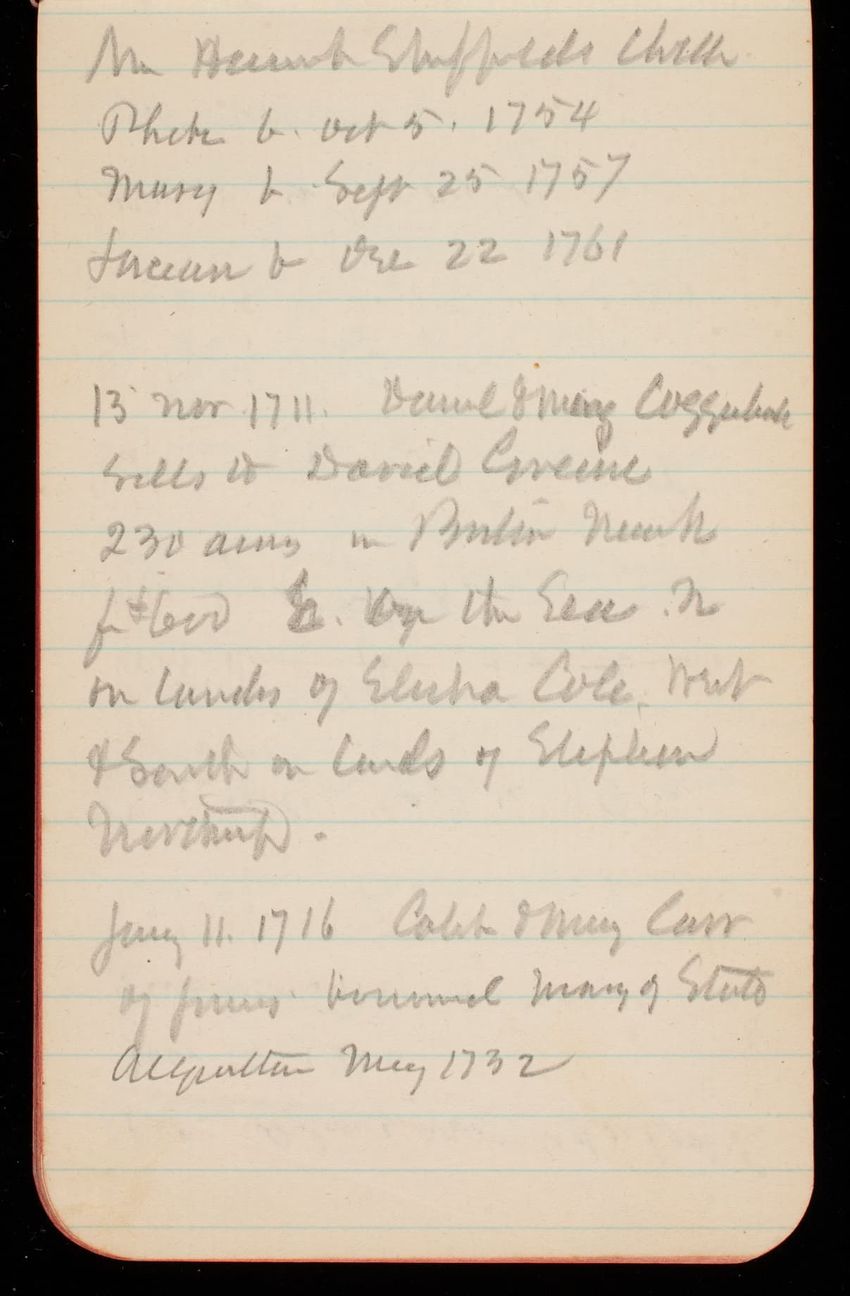 Mr Hannah Sheffields Child
Phebe b. Oct 5. 1754
Mary b Sept 25 1757
b Dec 22 1761
13 Nov 1711. Daniel & Mary Coggeshall
Sells to Daniel Greene
230 acres in Boston Neck
for £600 E. by the Sea. N
on lands of Elisha Cole. West
& South on lands of Stephen
Northup.
Jany 11. 1716 Caleb & Mary Carr
of James borrowed Money of State
May 1732